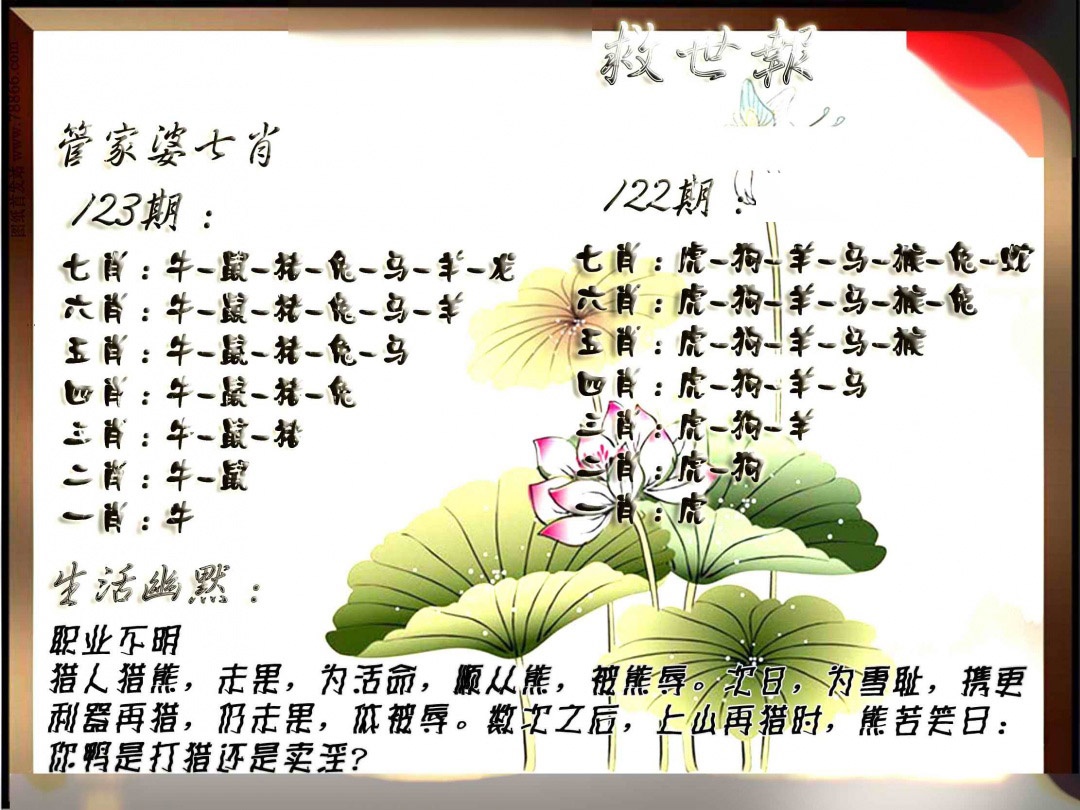 救世報
管家婆七肖
123期：
七肖：牛-鼠-猪-兔-马-羊-龙
六肖：牛-鼠-猪-兔-马-羊
五肖：牛-鼠-猪-兔-马
四肖：牛-鼠-猪-兔
三肖：牛-鼠-猪
二肖：牛-鼠
一肖：牛
122期：
七肖：虎-狗-羊-马-猴-兔-蛇
六肖：虎-狗-羊-马-猴-兔
五肖：虎-狗-羊-马-猴
四肖：虎-狗-羊-马
三肖：虎-狗-羊
二肖：虎-狗
一肖：虎
生活幽默：
职业不明
猎人猎熊，走果，为活命，顺从熊，被熊辱。次日，为雪耻，携更
利器再猎，仍走果，依被辱。数次之后，上山再猎时，熊若笑曰：
你鸭是打猎还是卖淫？